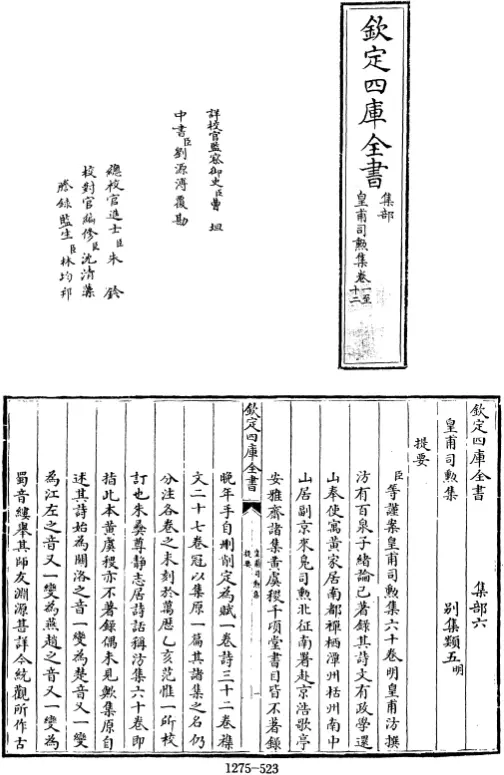 欽定四庫全書
集部
皇甫司勲集卷一至
十二
詳校官監察御史臣曹坦
中書臣劉源溥覆勘
總校官進士臣朱鈐
校對官編修臣沈清藻
謄錄監生臣林均邦
欽定四庫全書 集部六
皇甫司勲集 別集類五明
提要
臣等謹案皇甫司勲集六十卷明皇甫汸撰
汸有百泉子緒論已著録其詩文有政學還
山奉使寓黃家居南都禪栖澶州栝州南中
山居副京來鳧司勲北征南署赴京浩歌亭
安雅齋諸集黃虞稷千頃堂書目皆不著錄
欽定四庫全書
皇甫司勲集
提要
一
晚年手自刪削定為賦一卷詩三十二卷襍
文二十七卷冠以集原一篇其諸集之名仍
分注各卷之末刻於萬歷乙亥范惟一所校
訂也朱彛尊静志居詩話稱汸集六十卷即
指此本黃虞稷亦不著録偶未見歟集原自
述其詩始為關洛之音一變為楚音又一變
為江左之音又一變為燕趙之音又一變為
蜀音縷舉其師友淵源甚詳今統觀所作古
1275-523